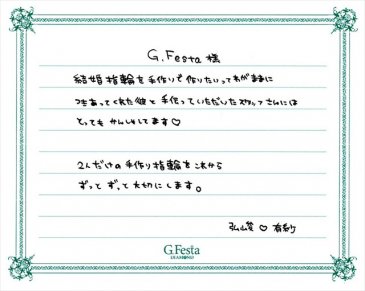 G.Festa 様
結婚指輪を手作りで作りたいってわがままに
つきあってくれた彼と手伝っていただいたスタッフさんには
とってもかんしゃしてます♡
2人だけの手作り指輪をこれから
ずっとずっと大切にします。
♡ 有紗
G.Festa
DIAMOND